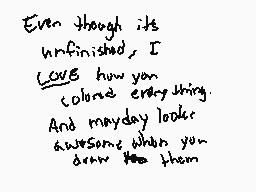 Even though its
unfinished, I
LOVE how you
colored everything.
And mayday looks
awesome when you
draw them